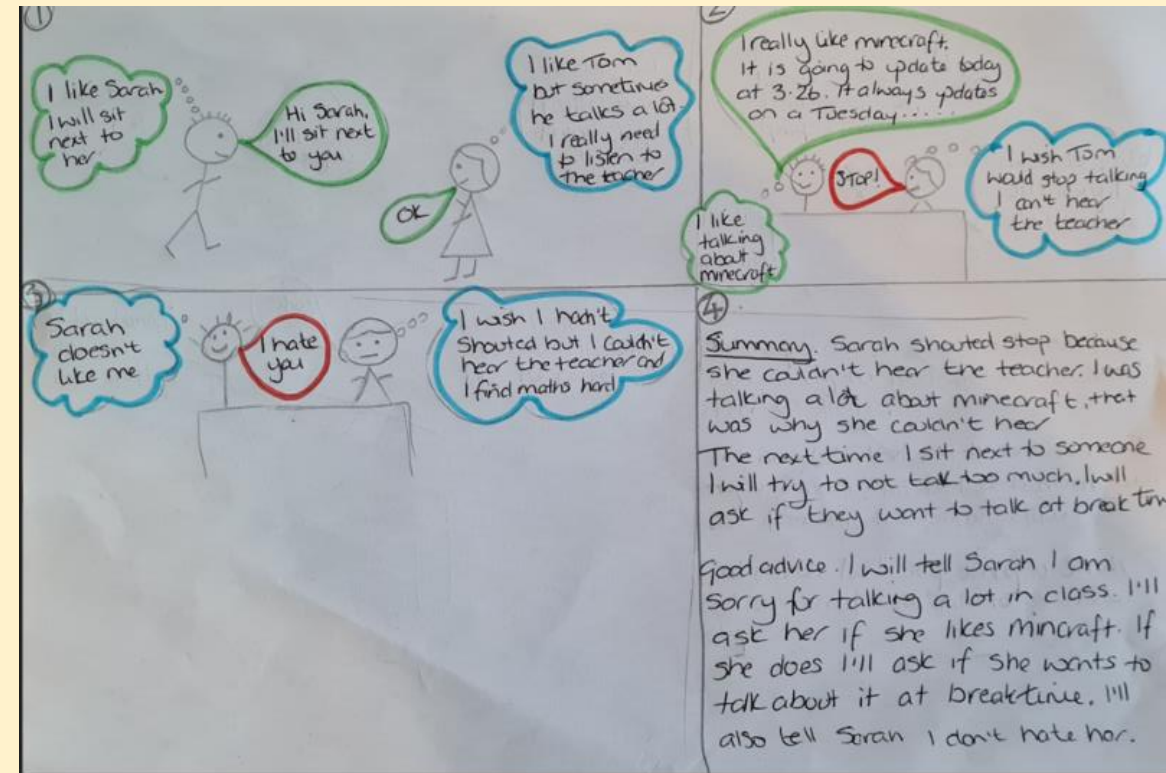 ①
I like Sarah
I will sit
next to
her
Hi Sarah,
I'll sit next
to you
OK
I like Tom
but sometimes
he talks a lot.
I really need
to listen to
the teacher
2
I really like minecraft.
It is going to update today
at 3.26. It always updates
on a Tuesday.....
I like
talking
about
minecraft
STOP!
I wish Tom
would stop talking
I can't hear
the teacher
③
Sarah
doesn't
like me
I hate
you
I wish I hadn't
shouted but I couldn't
hear the teacher and
I find maths hard
④
Summary. Sarah shouted stop because
she couldn't hear the teacher. I was
talking a lot about minecraft, that
was why she couldn't hear
The next time I sit next to someone
I will try to not talk too much. I will
ask if they want to talk at break tim
Good advice. I will tell Sarah I am
sorry for talking a lot in class. I'll
ask her if she likes mincraft. If
she does I'll ask if she wants to
talk about it at breaktime. I'll
also tell Sarah I don't hate her.